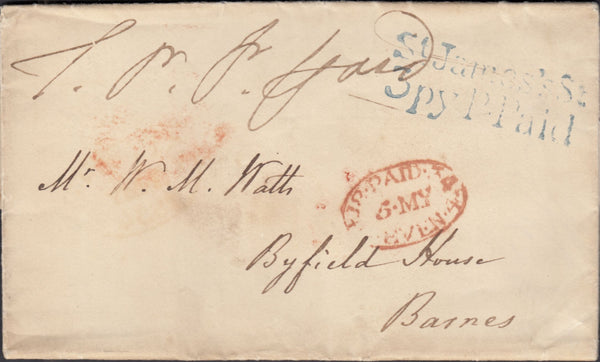 St James's St
3py P.Paid
Paid
Mr. W. M. Watts
PAID
5·MY
EVEN
Byfield House
Barnes